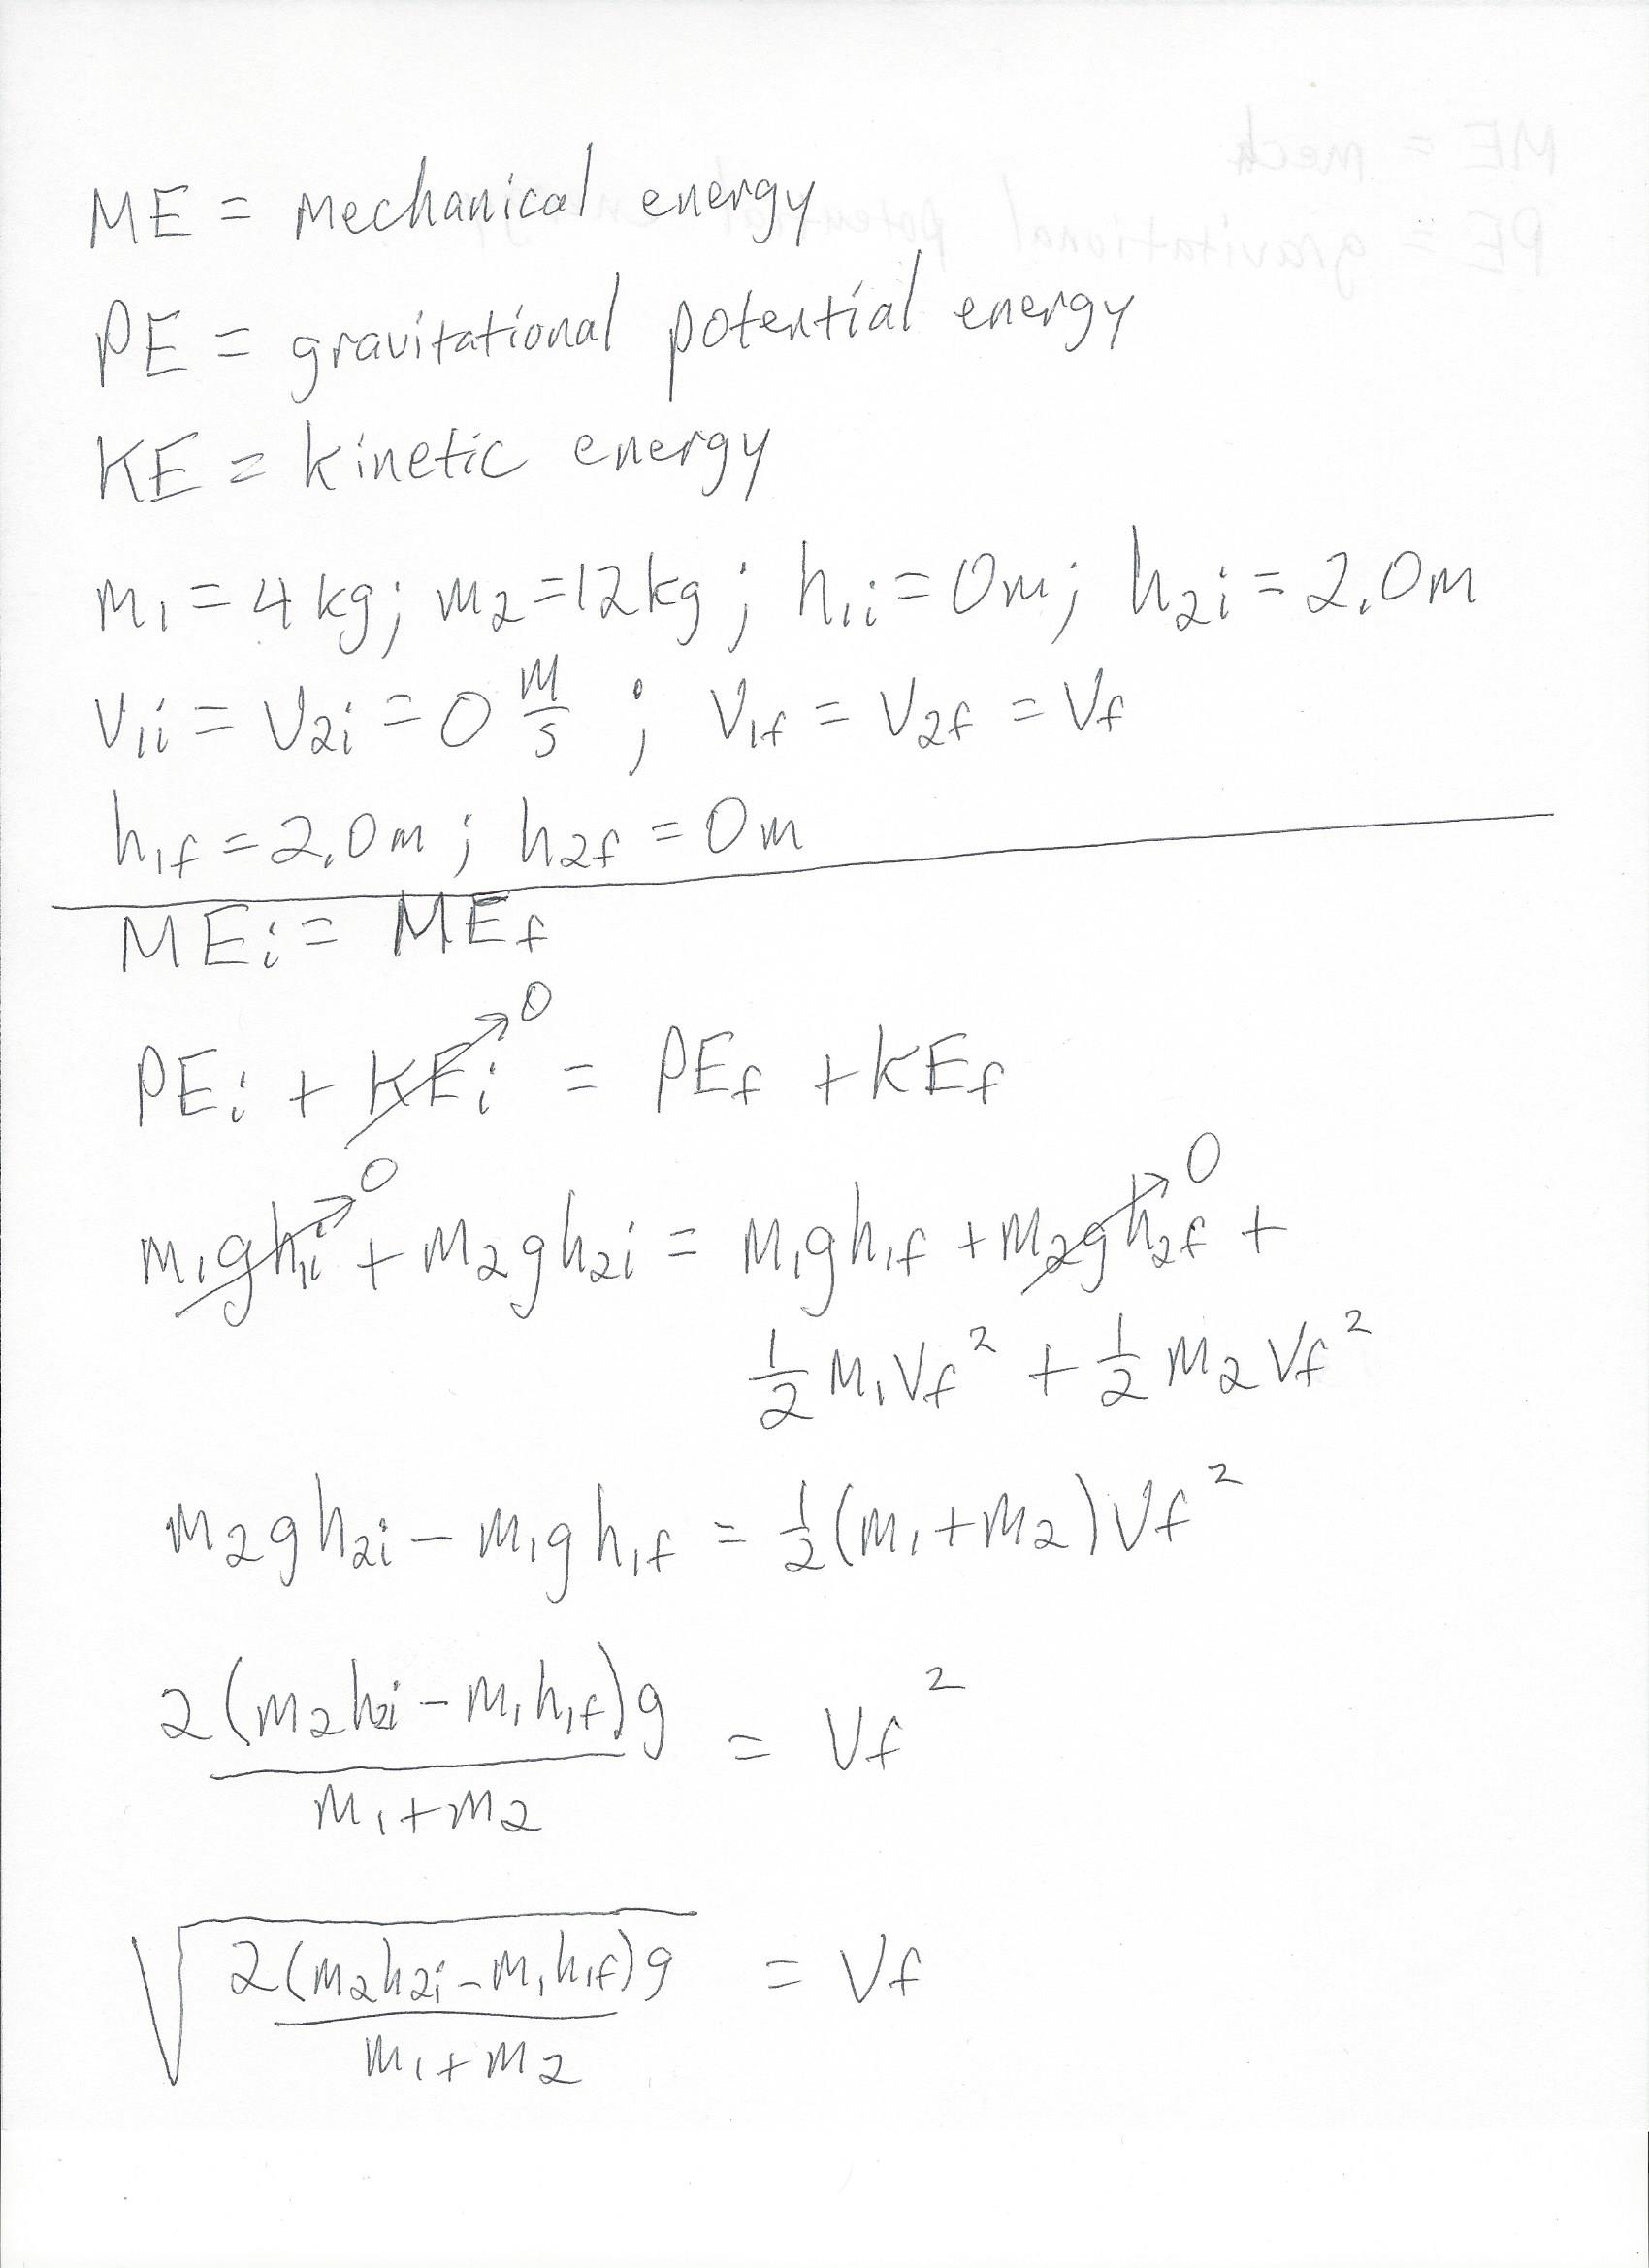 ME = mechanical energy
PE = gravitational potential energy
KE = kinetic energy
m₁ = 4 kg; m₂ = 12 kg; h₁ᵢ = 0m; h₂ᵢ = 2.0m
V₁ᵢ = V₂ᵢ = 0 m/s ; V₁f = V₂f = Vf
h₁f = 2.0m ; h₂f = 0m
MEᵢ = MEf
PEᵢ + KEᵢ → 0 = PEf + KEf
m₁gh₁ᵢ → 0 + m₂gh₂ᵢ = m₁gh₁f + m₂gh₂f → 0 +
1/2 m₁Vf² + 1/2 m₂Vf²
m₂gh₂ᵢ - m₁gh₁f = 1/2(m₁+m₂)Vf²
2(m₂h₂ᵢ - m₁h₁f)g / m₁+m₂ = Vf²
√(2(m₂h₂ᵢ - m₁h₁f)g / m₁+m₂) = Vf
ME = mech
PE = gravitational potential energy